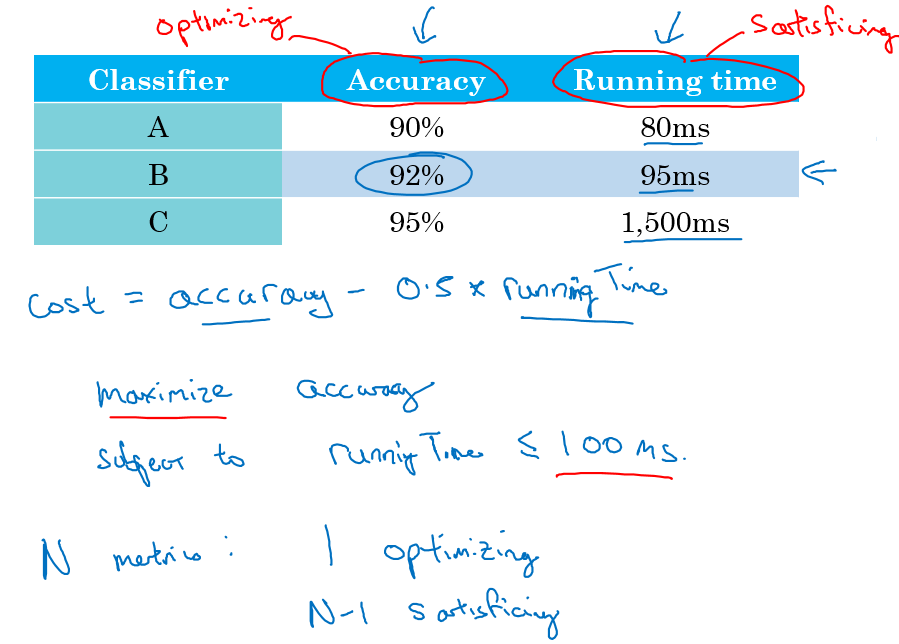 optimizing Satisficing
Classifier Accuracy Running time
A 90% 80ms
B 92% 95ms
C 95% 1,500ms
cost = accuracy - 0.5 x running Time
maximize accuracy
subject to running Time ≤ 100 ms.
N metrics: 1 optimizing
N-1 satisficing